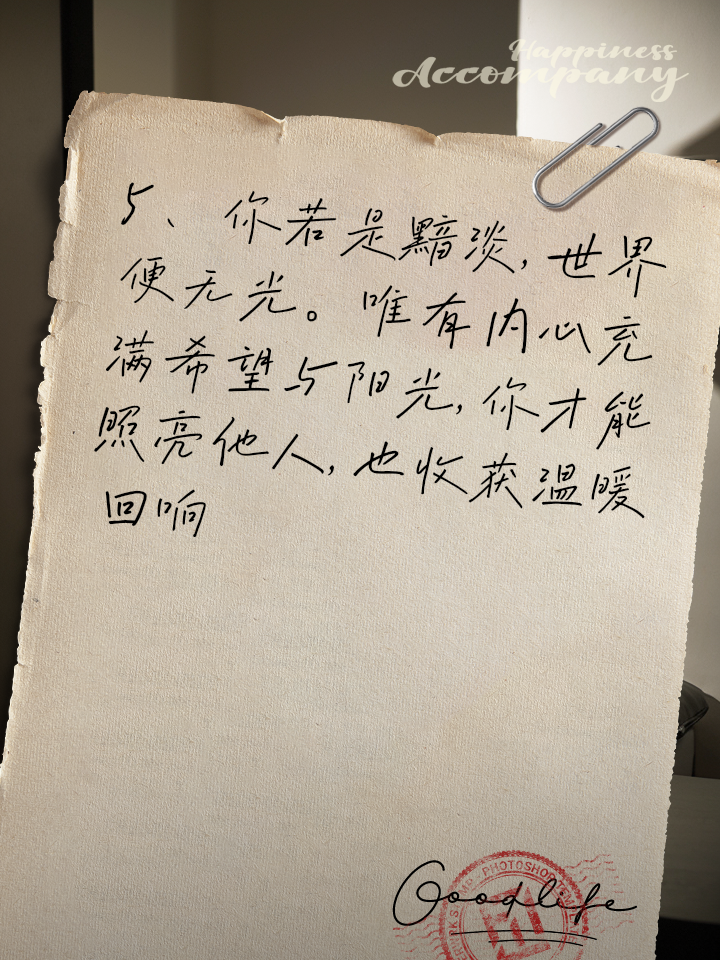 Happiness
Accompany
5、你若是黯淡,世界
便无光。唯有内心充
满希望与阳光,你才能
照亮他人,也收获温暖
回响
Goodlife
PHOTOSHOP